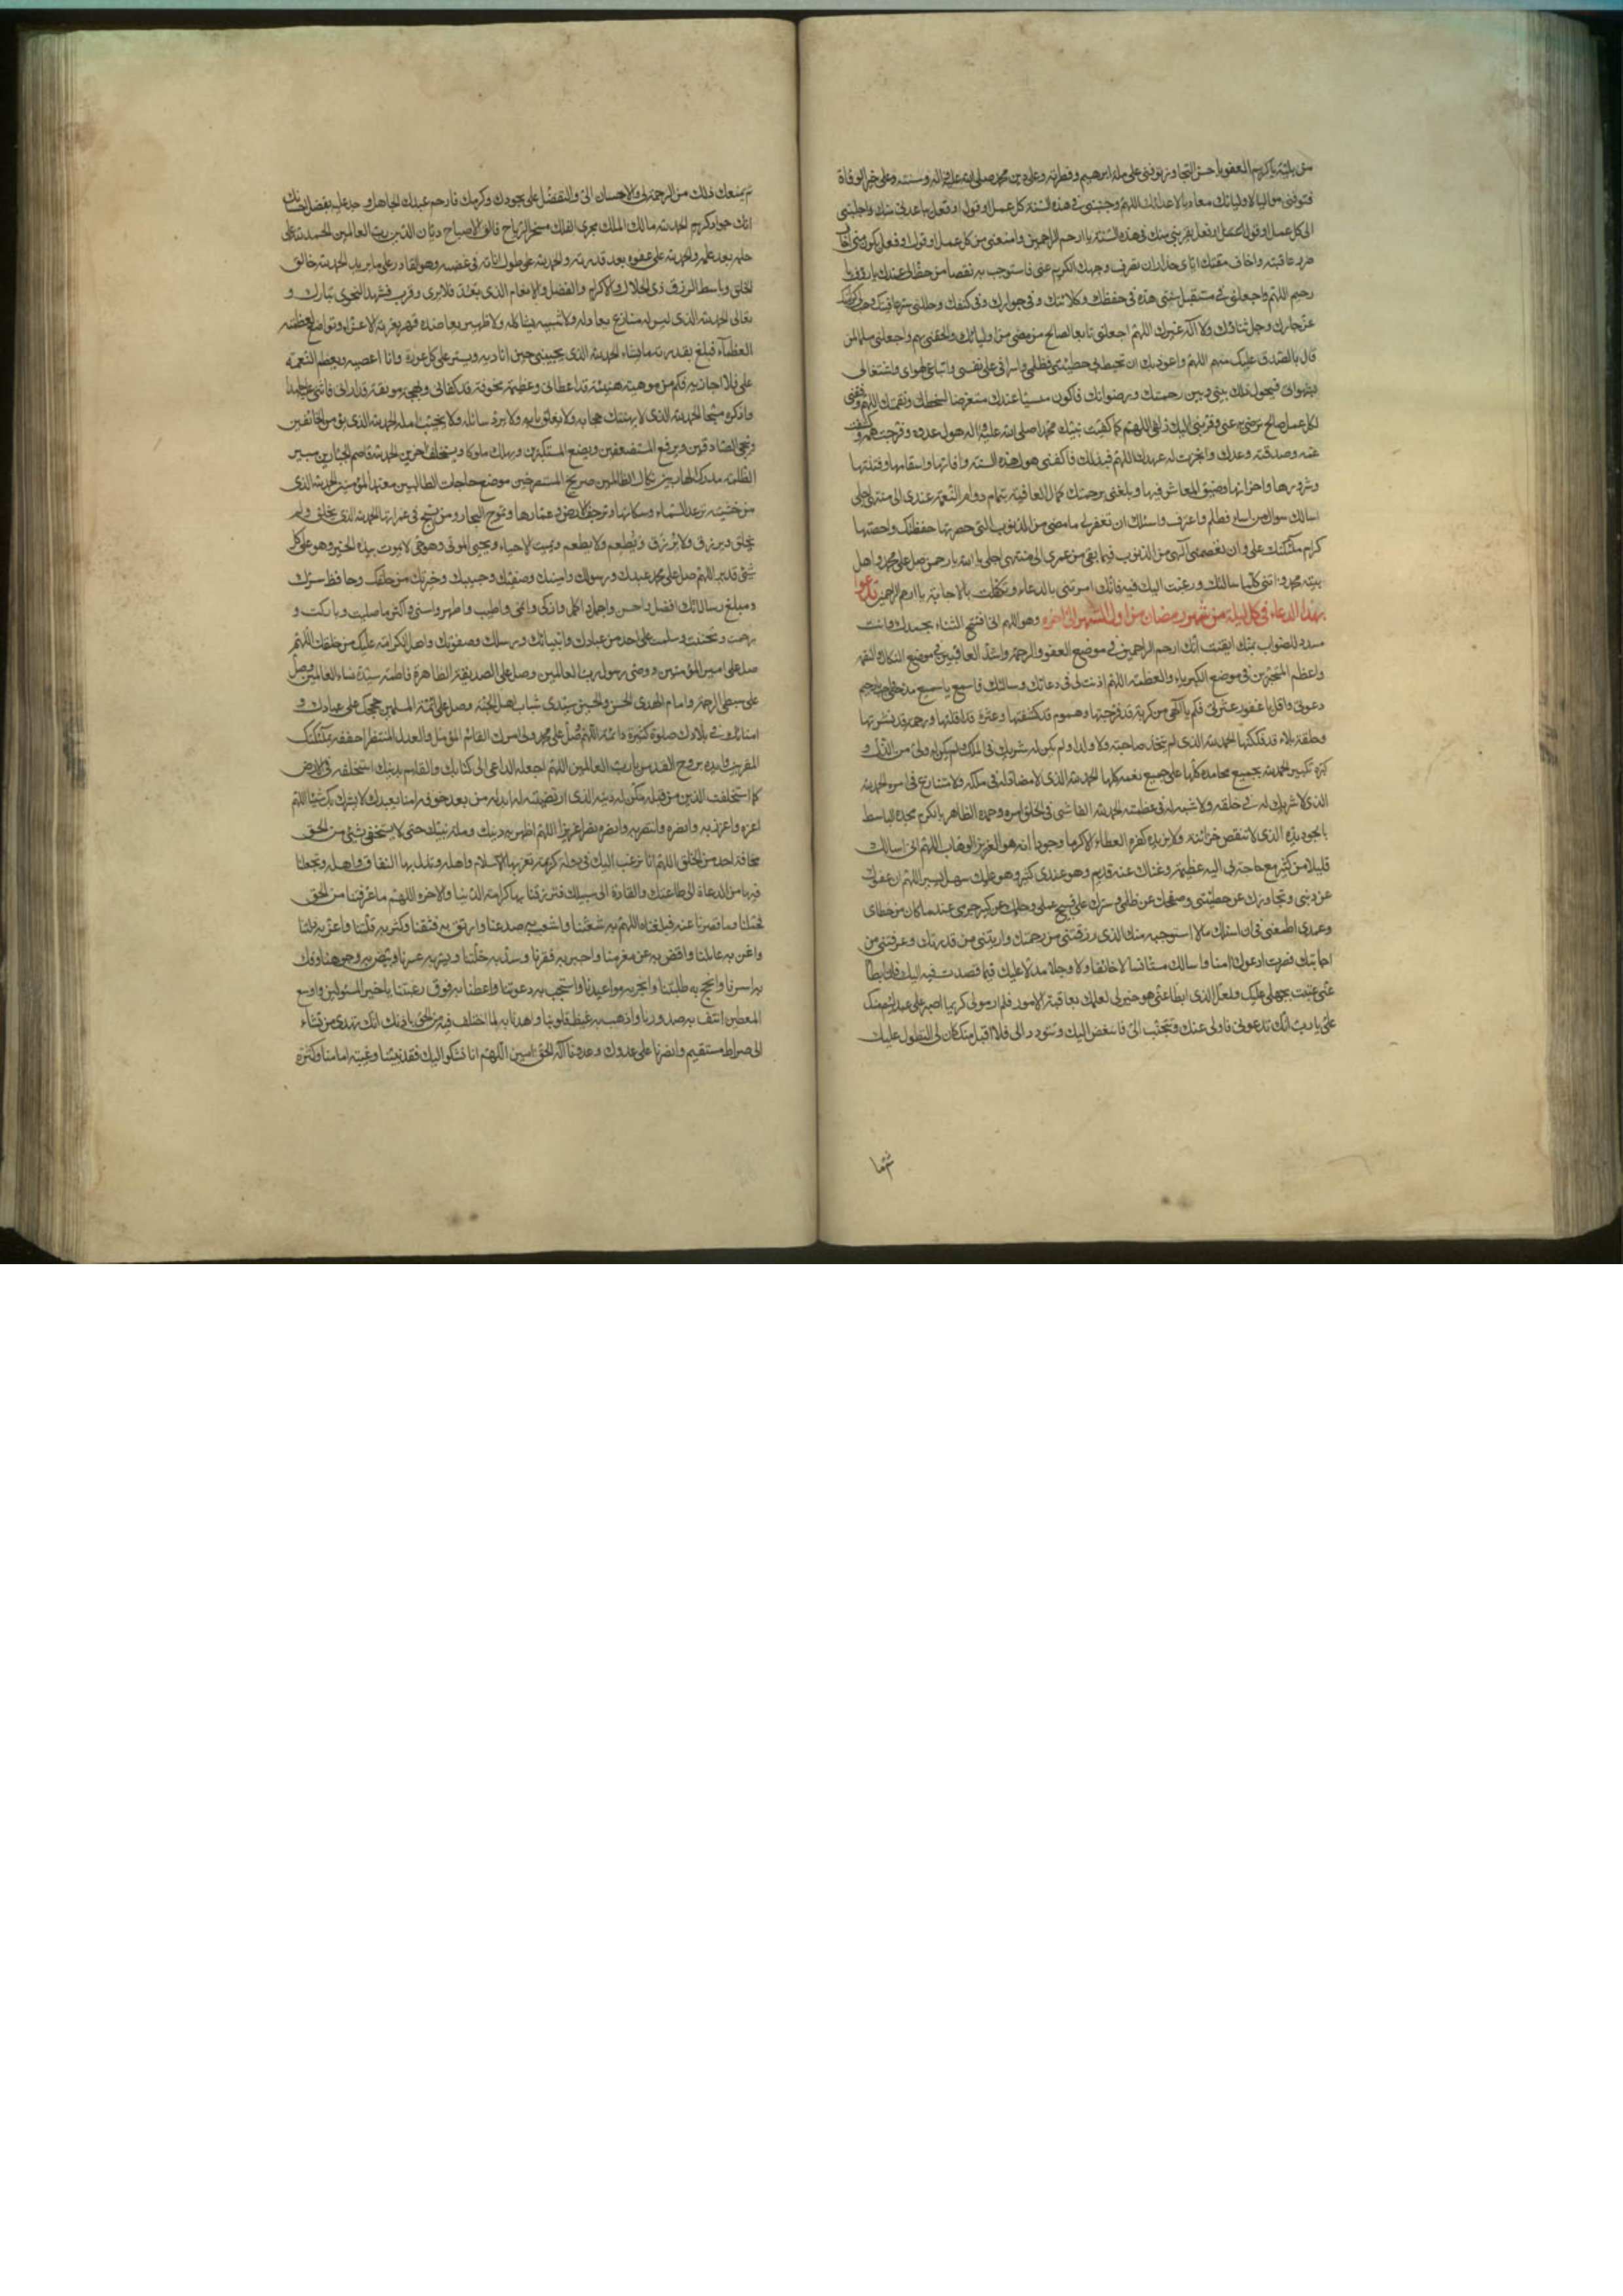 من بليّة يا كريم العفو يا حسن التجاوز توفنى على ملة ابرهيم وفطرته وعلى دين محمد صلى الله عليه واله وسنته وعلى خير الوفاة
فتوفنى مواليا لاوليائك معاديا لاعدائك اللهم وجنبنى فى هذه السنة كل عمل او قول او فعل يباعدنى منك واجلبنى
الى كل عمل او قول او فعل يقربنى منك فى هذه السنة يا ارحم الراحمين وامنعنى من كل عمل او قول او فعل يكون منى اخاف
ضرر عاقبته واخاف مقتك اياى عليه حذار ان تصرف وجهك الكريم عنى فاستوجب به نقصا من حظ لى عندك يا رؤف يا
رحيم اللهم واجعلنى فى مستقبل سنتى هذه فى حفظك وكلائتك وفى جوارك وفى كنفك وجللنى ستر عافيتك وهب لى كرامتك
عز جارك وجل ثناؤك ولا اله غيرك اللهم اجعلنى تابعا لصالح من مضى من اوليائك والحقنى بهم واجعلنى مسلما لمن
قال بالصدق عليك منهم اللهم واعوذ بك ان تحيط بى خطيئتى وظلمى واسرافى على نفسى واتباعى لهواى واشتغالى
بشهواتى فيحول ذلك بينى وبين رحمتك ورضوانك فاكون منسيا عندك متعرضا لسخطك ونقمتك اللهم وفقنى
لكل عمل صالح ترضى به عنى وقربنى اليك زلفى اللهم كما كفيت نبيك محمدا صلى الله عليه واله هول عدوه وفرجت همه وكشفت
غمه وصدقته وعدك وانجزت له عهدك اللهم فبذلك فاكفنى هول هذه السنة وافاتها واسقامها وفتنتها
وشرورها واحزانها وضيق المعاش فيها وبلغنى برحمتك كمال العافية بتمام دوام النعمة عندى الى منتهى اجلى
اسالك سوال من اساء وظلم واعترف واسئلك ان تغفر لى ما مضى من الذنوب التى حصرتها حفظتك واحصتها
كرام ملئكتك على وان تعصمنى الهى من الذنوب فيما بقى من عمرى الى منتهى اجلى يا الله يا رحمن صل على محمد واهل
بيته محمد واتنى كلما سالتك ورغبت اليك فيه فانك امرتنى بالدعاء وتكفلت بالاجابة يا ارحم الراحمين تدعوا
بهذا الدعاء فى كل ليلة من شهر رمضان من اول الشهر الى اخره وهو اللهم انى افتتح الثناء بحمدك وانت
مسدد للصواب بمنك ايقنت انك ارحم الراحمين فى موضع العفو والرحمة واشد المعاقبين فى موضع النكال والنقمه
واعظم المتجبرين فى موضع الكبرياء والعظمة اللهم اذنت لى فى دعائك ومسالتك فاسمع يا سميع مدحتى واجب يا رحيم
دعوتى واقل يا غفور عثرتى فكم يا الهى من كربة قد فرجتها وهموم قد كشفتها وعثرة قد اقلتها ورحمة قد نشرتها
وحلقة بلاء قد فككتها الحمد لله الذى لم يتخذ صاحبة ولا ولدا ولم يكن له شريك فى الملك ولم يكن له ولى من الذل و
كبره تكبيرا الحمد لله بجميع محامده كلها على جميع نعمه كلها الحمد لله الذى لا مضاد له فى ملكه ولا منازع فى امره الحمد لله
الذى لا شريك له فى خلقه ولا شبه له فى عظمته الحمد لله الفاشى فى الخلق امره وحمده الظاهر بالكرم مجده الباسط
بالجود يده الذى لا تنقص خزائنه ولا يزيده كثرة العطاء الا كرما وجودا انه هو العزيز الوهاب اللهم انى اسالك
قليلا من كثير مع حاجة بى اليه عظيمة وغناك عنه قديم وهو عندى كثير وهو عليك سهل يسير اللهم ان عفوك
عن ذنبى وتجاوزك عن خطيئتى وصفحك عن ظلمى وسترك على قبيح عملى وحلمك عن كبير جرمى عند ما كان من خطاى
وعمدى اطمعنى فى ان اسئلك ما لا استوجبه منك الذى رزقتنى من رحمتك واريتنى من قدرتك وعرفتنى من
اجابتك فصرت ادعوك امنا واسالك مستانسا لا خائفا ولا وجلا مدلا عليك فيما قصدت فيه اليك فان ابطا
عنى عتبت بجهلى عليك ولعل الذى ابطا عنى هو خير لى لعلمك بعاقبة الامور فلم ار مولى كريما اصبر على عبد لئيم منك
على يا رب انك تدعونى فاولى عنك وتتحبب الى فاتبغض اليك وتتودد الى فلا اقبل منك كان لى التطول عليك
ثم يمنعك ذلك من الرحمة لى والاحسان الى والتفضل على بجودك وكرمك فارحم عبدك الجاهل وجد عليه بفضل احسانك
انك جواد كريم الحمد لله مالك الملك مجرى الفلك مسخر الرياح فالق الاصباح ديان الدين رب العالمين الحمد لله على
حلمه بعد علمه والحمد لله على عفوه بعد قدرته والحمد لله على طول اناته فى غضبه وهو القادر على ما يريد الحمد لله خالق
الخلق وباسط الرزق ذى الجلال والاكرام والفضل والانعام الذى بعد فلا يرى وقرب فشهد النجوى تبارك و
تعالى الحمد لله الذى ليس له منازع يعادله ولا شبيه يشاكله ولا ظهير يعاضده قهر بعزته الاعزاء وتواضع لعظمته
العظماء فبلغ بقدرته ما يشاء الحمد لله الذى يجيبنى حين اناديه ويستر على كل عورة وانا اعصيه ويعظم النعمة
على فلا اجازيه فكم من موهبة هنيئة قد اعطانى وعظيمة مخوفة قد كفانى وبهجة مونقة قد ارانى فاثنى عليه حامدا
واذكره مسبحا الحمد لله الذى لا يهتك حجابه ولا يغلق بابه ولا يرد سائله ولا يخيب امله الحمد لله الذى يؤمن الخائفين
وينجى الصادقين ويرفع المستضعفين ويضع المستكبرين ويهلك ملوكا ويستخلف اخرين الحمد لله قاصم الجبارين مبير
الظلمة مدرك الهاربين نكال الظالمين صريخ المستصرخين موضع حاجات الطالبين معتمد المؤمنين الحمد لله الذى
من خشيته ترعد السماء وسكانها وترجف الارض وعمارها وتموج البحار ومن يسبح فى غمراتها الحمد لله الذى يخلق ولم
يخلق ويرزق ولا يرزق ويطعم ولا يطعم ويميت الاحياء ويحيى الموتى وهو حى لا يموت بيده الخير وهو على كل
شئ قدير اللهم صل على محمد عبدك ورسولك وامينك وصفيك وحبيبك وخيرتك من خلقك وحافظ سرك
ومبلغ رسالاتك افضل واحسن واجمل واكمل وازكى وانمى واطيب واطهر واسنى واكثر ما صليت وباركت و
ترحمت وتحننت وسلمت على احد من عبادك وانبيائك ورسلك وصفوتك واهل الكرامة عليك من خلقك اللهم
صل على امير المؤمنين ووصى رسول رب العالمين وصل على الصديقة الطاهرة فاطمة سيدة نساء العالمين وصل
على سبطى الرحمة وامامى الهدى الحسن والحسين سيدى شباب اهل الجنة وصل على ائمة المسلمين حججك على عبادك و
امنائك فى بلادك صلوة كثيرة دائمة اللهم صل على محمد وولى امرك القائم المؤمل والعدل المنتظر احففه بملئكتك
المقربين وايده بروح القدس يا رب العالمين اللهم اجعله الداعى الى كتابك والقائم بدينك استخلفه فى الارض
كما استخلفت الذين من قبله مكن له دينه الذى ارتضيته له ابدله من بعد خوفه امنا يعبدك لا يشرك بك شيئا اللهم
اعزه واعزز به وانصره وانتصر به وانصره نصرا عزيزا اللهم اظهر به دينك وملة نبيك حتى لا يستخفى بشئ من الحق
مخافة احد من الخلق اللهم انا نرغب اليك فى دولة كريمة تعز بها الاسلام واهله وتذل بها النفاق واهله وتجعلنا
فيها من الدعاة الى طاعتك والقادة الى سبيلك وترزقنا بها كرامة الدنيا والاخره اللهم ما عرفتنا من الحق
فحملنا وما قصرنا عنه فبلغناه اللهم المم به شعثنا واشعب به صدعنا وارتق به فتقنا وكثر به قلتنا واعز به ذلتنا
واغن به عائلنا واقض به عن مغرمنا واجبر به فقرنا وسد به خلتنا ويسر به عسرنا وبيض به وجوهنا وفك
به اسرنا وانجح به طلبتنا وانجز به مواعيدنا واستجب به دعوتنا واعطنا به فوق رغبتنا يا خير المسئولين واوسع
المعطين اشف به صدورنا واذهب به غيظ قلوبنا واهدنا به لما اختلف فيه من الحق باذنك انك تهدى من تشاء
الى صراط مستقيم وانصرنا على عدوك وعدونا اله الحق امين اللهم انا نشكو اليك فقد نبينا وغيبة امامنا وكثرة